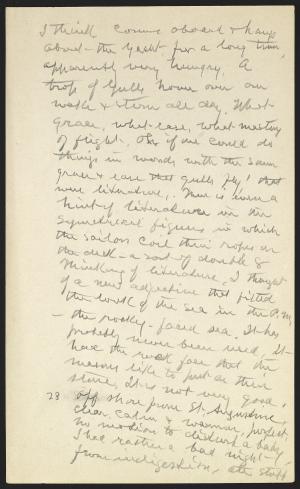 I think comes aboard & hangs
about the yacht for a long time,
apparently very hungry. A
troop of Gulls hover over our
wake & stern all day. What
grace, what ease, what mastery
of flight. Oh if one could do
things in words with the same
grace & ease that gulls fly! that
were literature. There is even a
hint of literature in the
symmetrical figures in which
the sailors coil their ropes on
the deck - a sort of double 8
Thinking of literature, I thought
of a new adjective that fitted
the look of the sea in the P.M.
- the rocky-faced sea. It has
probably never been used, It
had the rock face that the
masons like to put on their
stone, It is not very good.
28 off shore from St. Augustine,
clear, calm & warm, perfect.
no motion to disturb a baby,
I had rather a bad night -
from indigestion, the stuff